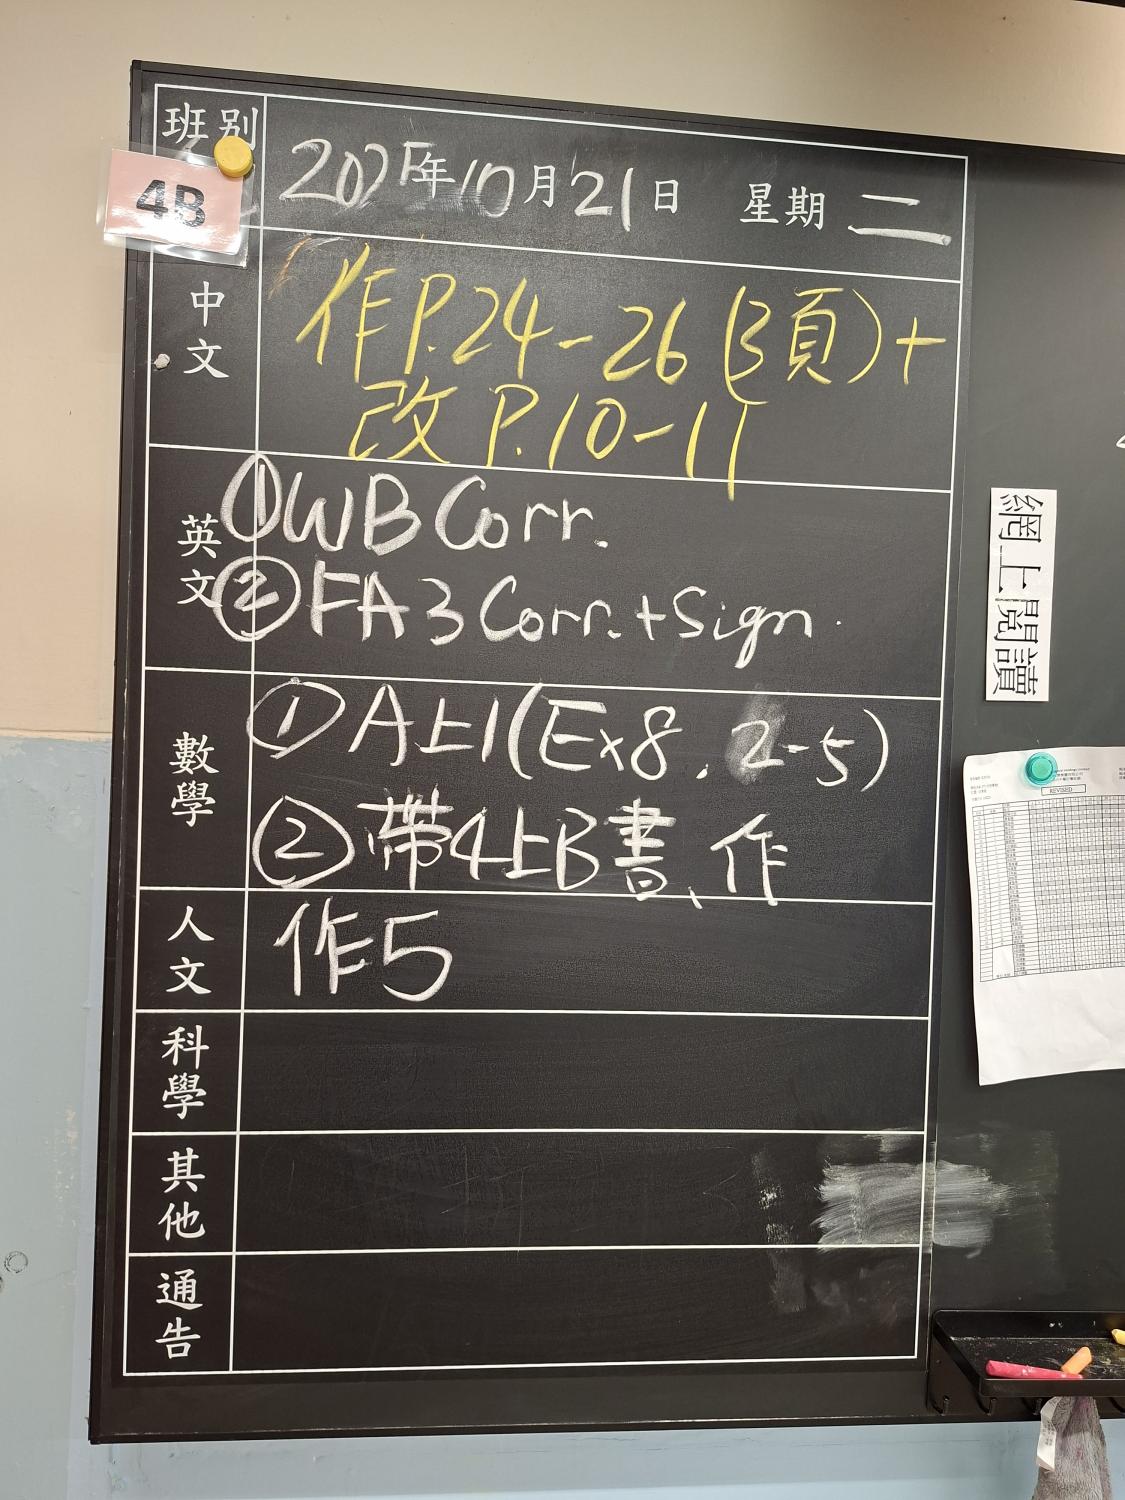 班別
4B
2025年10月21日 星期二
中文
作P.24-26(3頁)+
改P.10-11
英文
①WB Corr.
②FA3 Corr.+Sign.
數學
①A上1(Ex8, 2-5)
②帶4上B書、作
人文
作5
科學
其他
通告
網上閱讀
REVISED